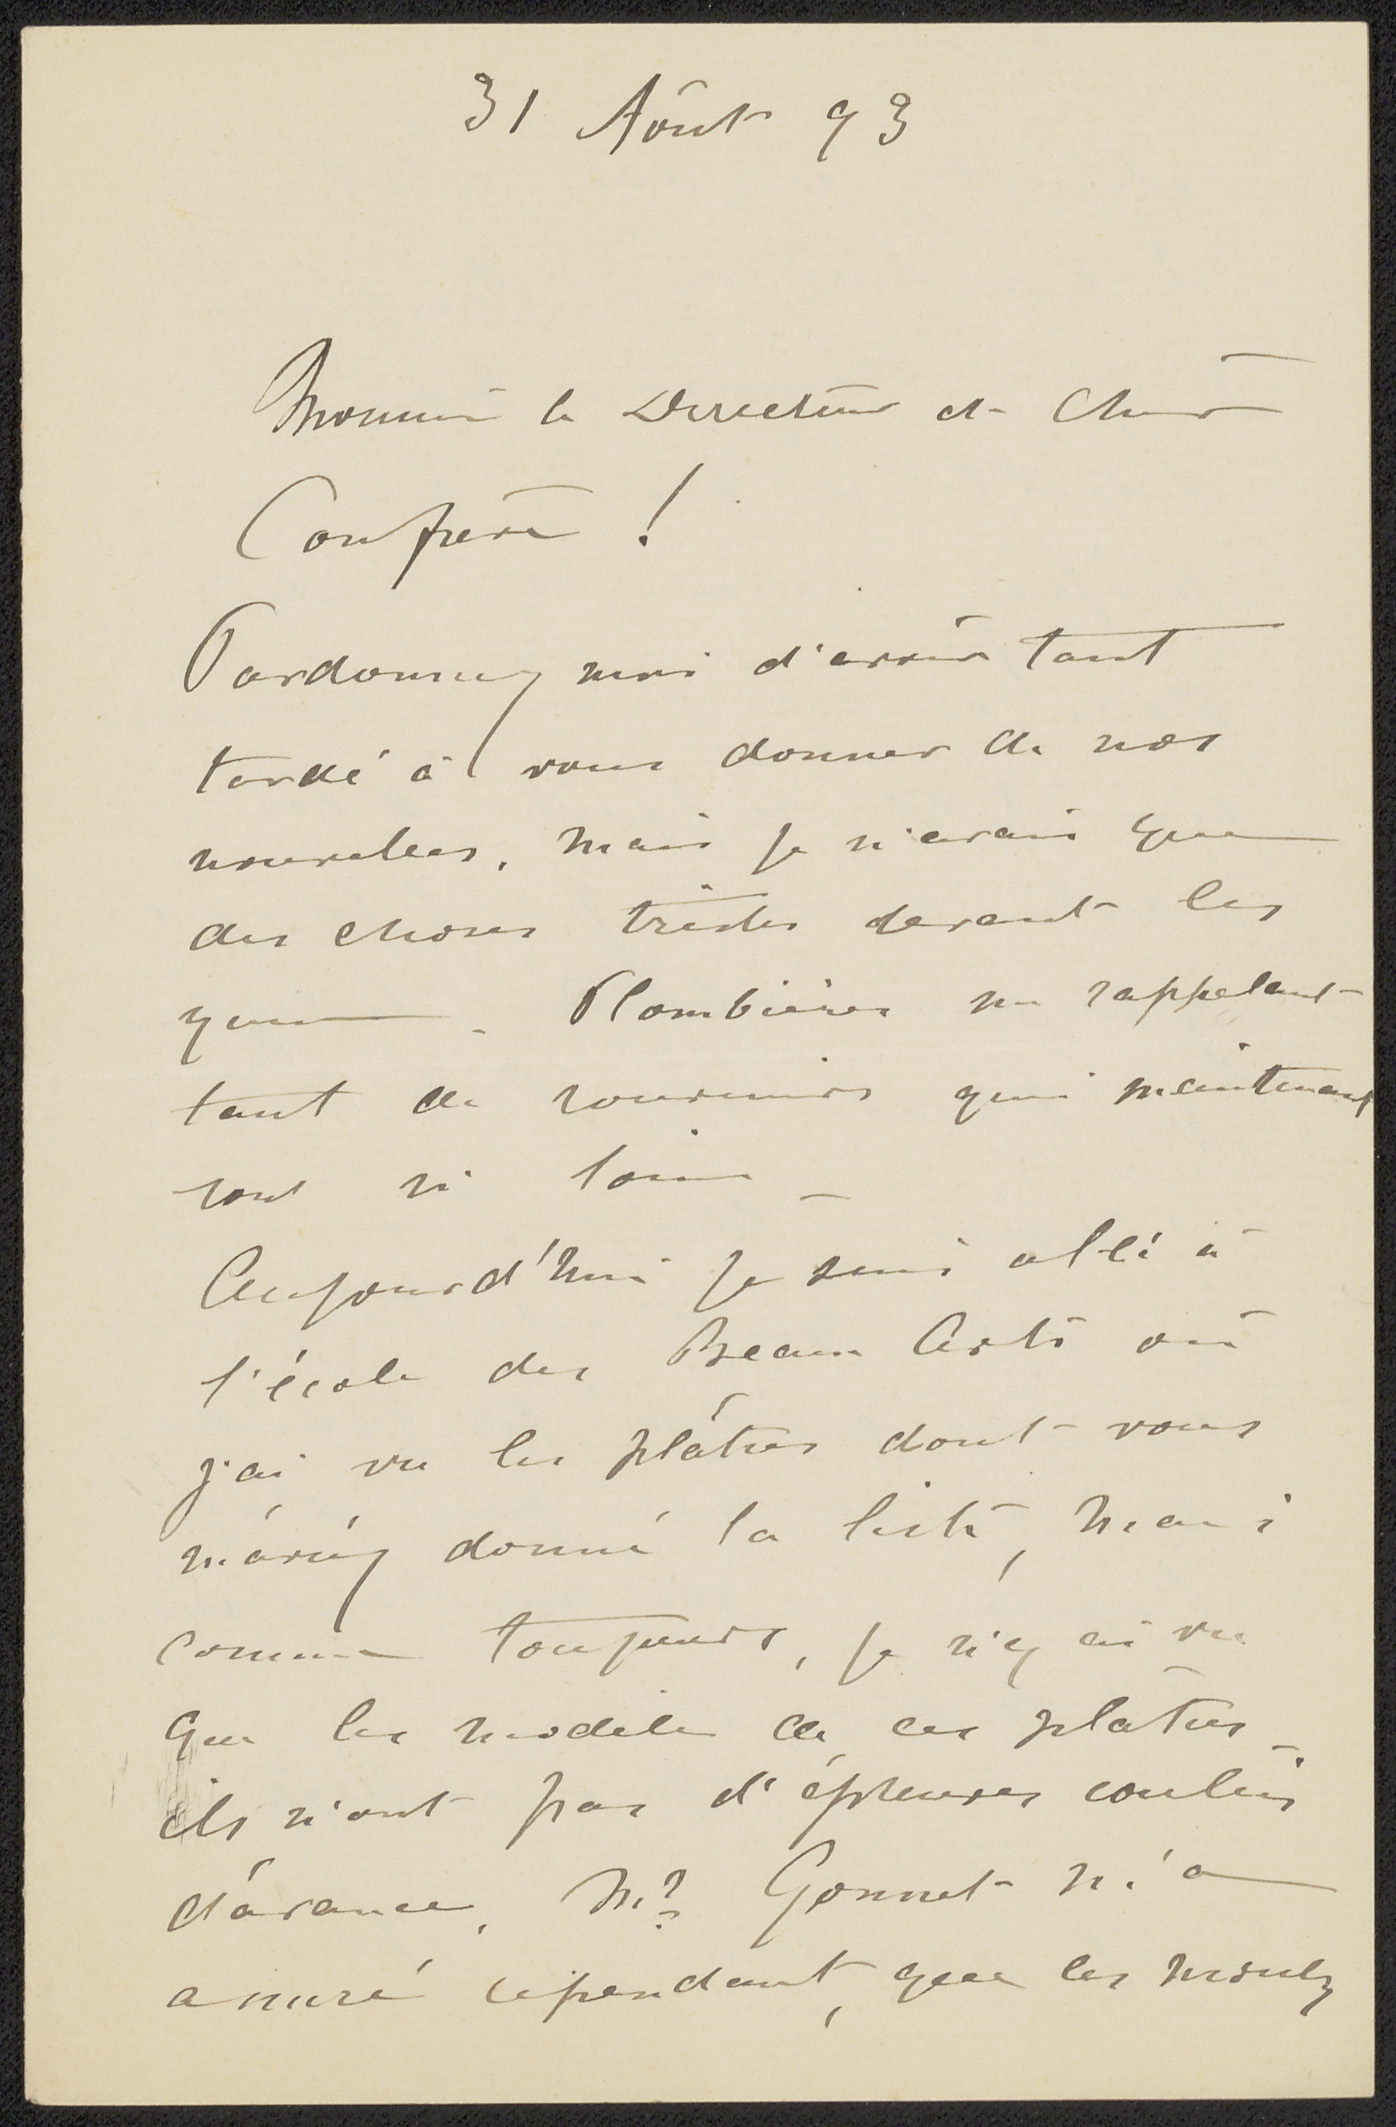 31 Août 93
Monsieur le Directeur et Cher
Confrère !
Pardonnez moi d'avoir tant
tardé à vous donner de nos
nouvelles. Mais je n'avais que
des choses tristes devant les
yeux. Plombières me rappelant
tant de souvenirs qui maintenant
sont si loin _
Aujourd'hui je suis allé à
l'école des Beaux Arts où
j'ai vu les plâtres dont vous
m'aviez donné la liste, Mais
comme toujours, je n'y ai vu
que les modèles de ces plâtres _
ils n'ont pas d'épreuves coulées
d'avance. Mr Gonnet m'a
assuré cependant, que les moules